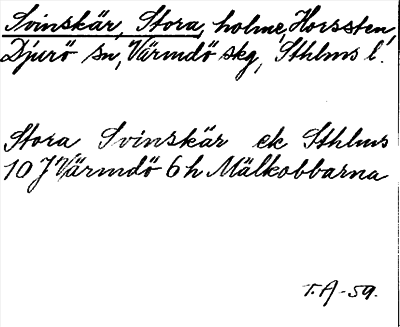 Svinskär, Stora, holme, Horssten,
Djurö sn, Värmdö skg, Sthlms l.
Stora Svinskär ek Sthlms
10 J Värmdö 6 h Mälkobbarna
T.A-59.